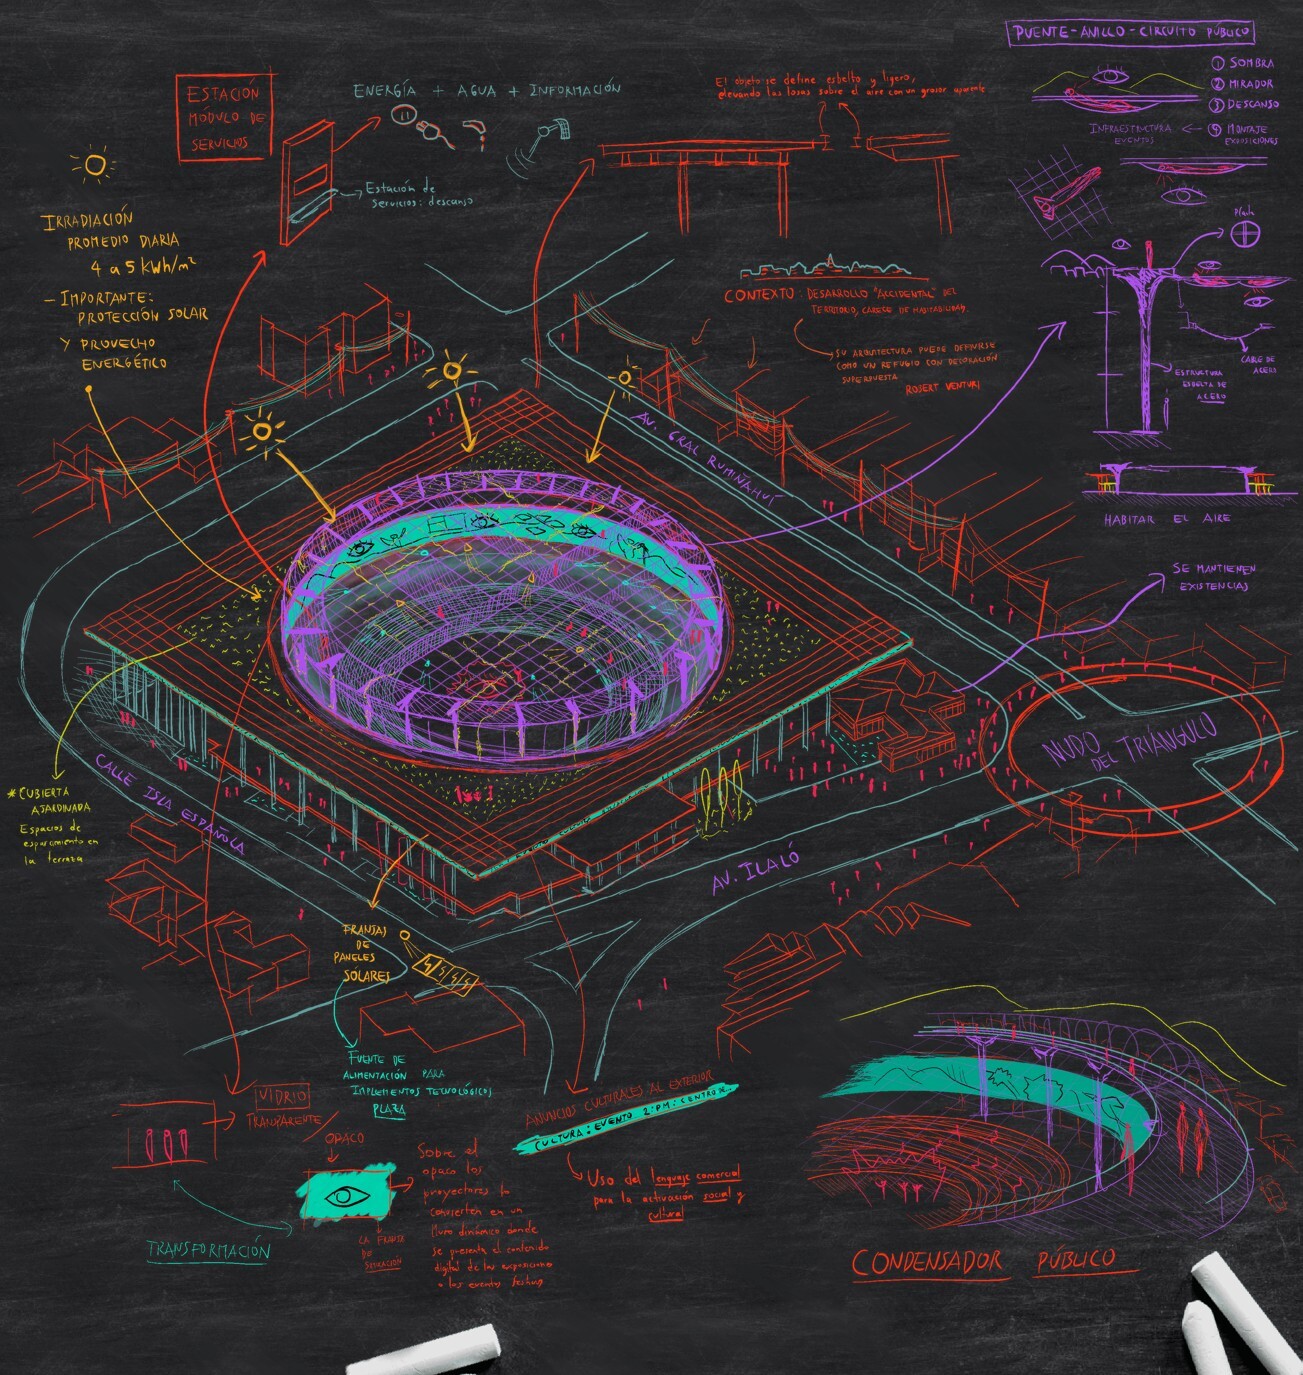 PUENTE-ANILLO-CIRCUITO PÚBLICO
1 SOMBRA
2 MIRADOR
3 DESCANSO
4 MONTAJE
EXPOSICIONES
INFRAESTRUCTURA
EVENTOS
ESTACIÓN
MÓDULO DE
SERVICIOS
ENERGÍA + AGUA + INFORMACIÓN
Estación de
servicios: descanso
El objeto se define esbelto y ligero,
elevando las losas sobre el aire con un grosor aparente
IRRADIACIÓN
PROMEDIO DIARIA
4 a 5 kWh/m²
- IMPORTANTE:
PROTECCIÓN SOLAR
Y PROVECHO
ENERGÉTICO
CONTEXTO: DESARROLLO "ACCIDENTAL" DEL
TERRITORIO, CARECE DE HABITABILIDAD.
SU ARQUITECTURA PUEDE DEFINIRSE
COMO UN REFUGIO CON DECORACIÓN
SUPERPUESTA
ROBERT VENTURI
Planta
CABLE DE
ACERO
ESTRUCTURA
ESBELTA DE
ACERO
HABITAR EL AIRE
SE MANTIENEN
EXISTENCIAS
AV. GRAL RUMIÑAHUI
NUDO
DEL TRIÁNGULO
CALLE ISLA ESPAÑOLA
AV. ILALÓ
* CUBIERTA
AJARDINADA
Espacios de
esparcimiento en
la terraza
FRANJAS
DE
PANELES
SOLARES
FUENTE DE
ALIMENTACIÓN PARA
IMPLEMENTOS TECNOLÓGICOS
PLAZA
VIDRIO
TRANSPARENTE
OPACO
TRANSFORMACIÓN
LA FRANJA
DE
Sobre el
opaco los
proyectores lo
convierten en un
muro dinámico donde
se presenta el contenido
digital de las exposiciones
o los eventos
ANUNCIOS CULTURALES AL EXTERIOR
CULTURA: EVENTO 2:PM: CENTRO
Uso del lenguaje comercial
para la activación social y
cultural
CONDENSADOR PÚBLICO